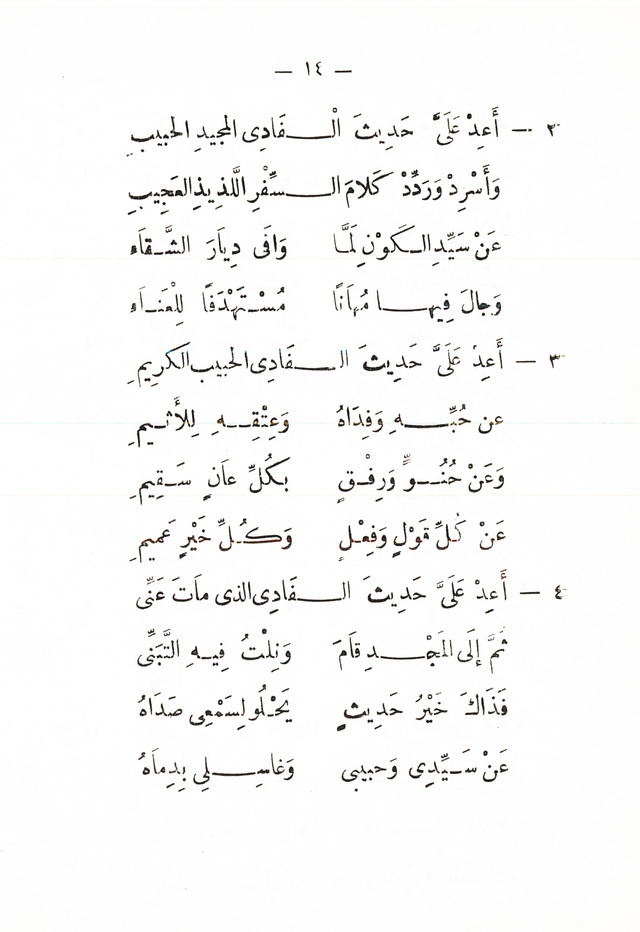 — ١٤ —
٢ — أَعِدْ عَلَيَّ حَدِيثَ الْـفَادِى المجيدِ الحبيبِ
وَأَسْرِدْ وَرَدِّدْ كَلامَ الـسِّفْرِ اللَّذِيذِ العَجِيبِ
عَنْ سَيِّدِ الـكَوْنِ لَمَّا وَافَى دِيارَ الشَّـقَاء
وَجالَ فِيهـا مُهَانًا مُسْـتَهْدَفًا لِلْعَنَـاء
٣ — أَعِدْ عَلَيَّ حَدِيثَ الـفَادِى الحبيبِ الكريمِ
عن حُبِّـهِ وَفِدَاهُ وَعِتْقِـهِ لِلأَثـيمِ
وَعَنْ حُنُـوٍّ وَرِفْـقٍ بكُلِّ عاَنٍ سَـقِيمِ
عَنْ كُلِّ قَوْلٍ وَفِعْـلٍ وَكُـلِّ خَيْرٍ عَميمِ
٤ — أَعِدْ عَلَيَّ حَدِيثَ الـفَادِى الذى ماَتَ عَنِّى
ثُمَّ إلَى المَجْـدِ قَامَ وَنِلْتُ فِيـهِ التَّبَنِّى
فَذَاكَ خَيْرُ حَدِيثٍ يَحْـلُو لِسَمْعِى صَدَاهُ
عَنْ سَـيِّدِى وَحبيبى وَغاسِـلِى بِدِماَهُ